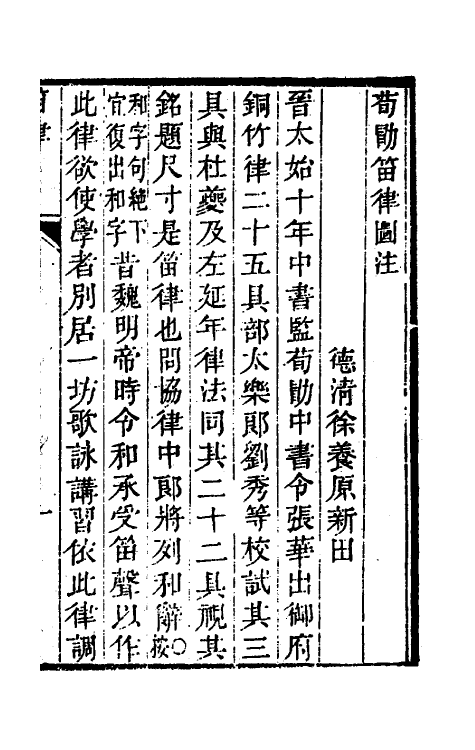 荀勖笛律圖注
德清徐養原新田
晉太始十年中書監荀勖中書令張華出御府
銅竹律二十五具部太樂郎劉秀等校試其三
具與杜夔及左延年律法同其二十二具視其
銘題尺寸是笛律也問協律中郎將列和辭○按
和字句絕下
宜復出和字昔魏明帝時令和承受笛聲以作
此律欲使學者別居一坊歌詠講習依此律調